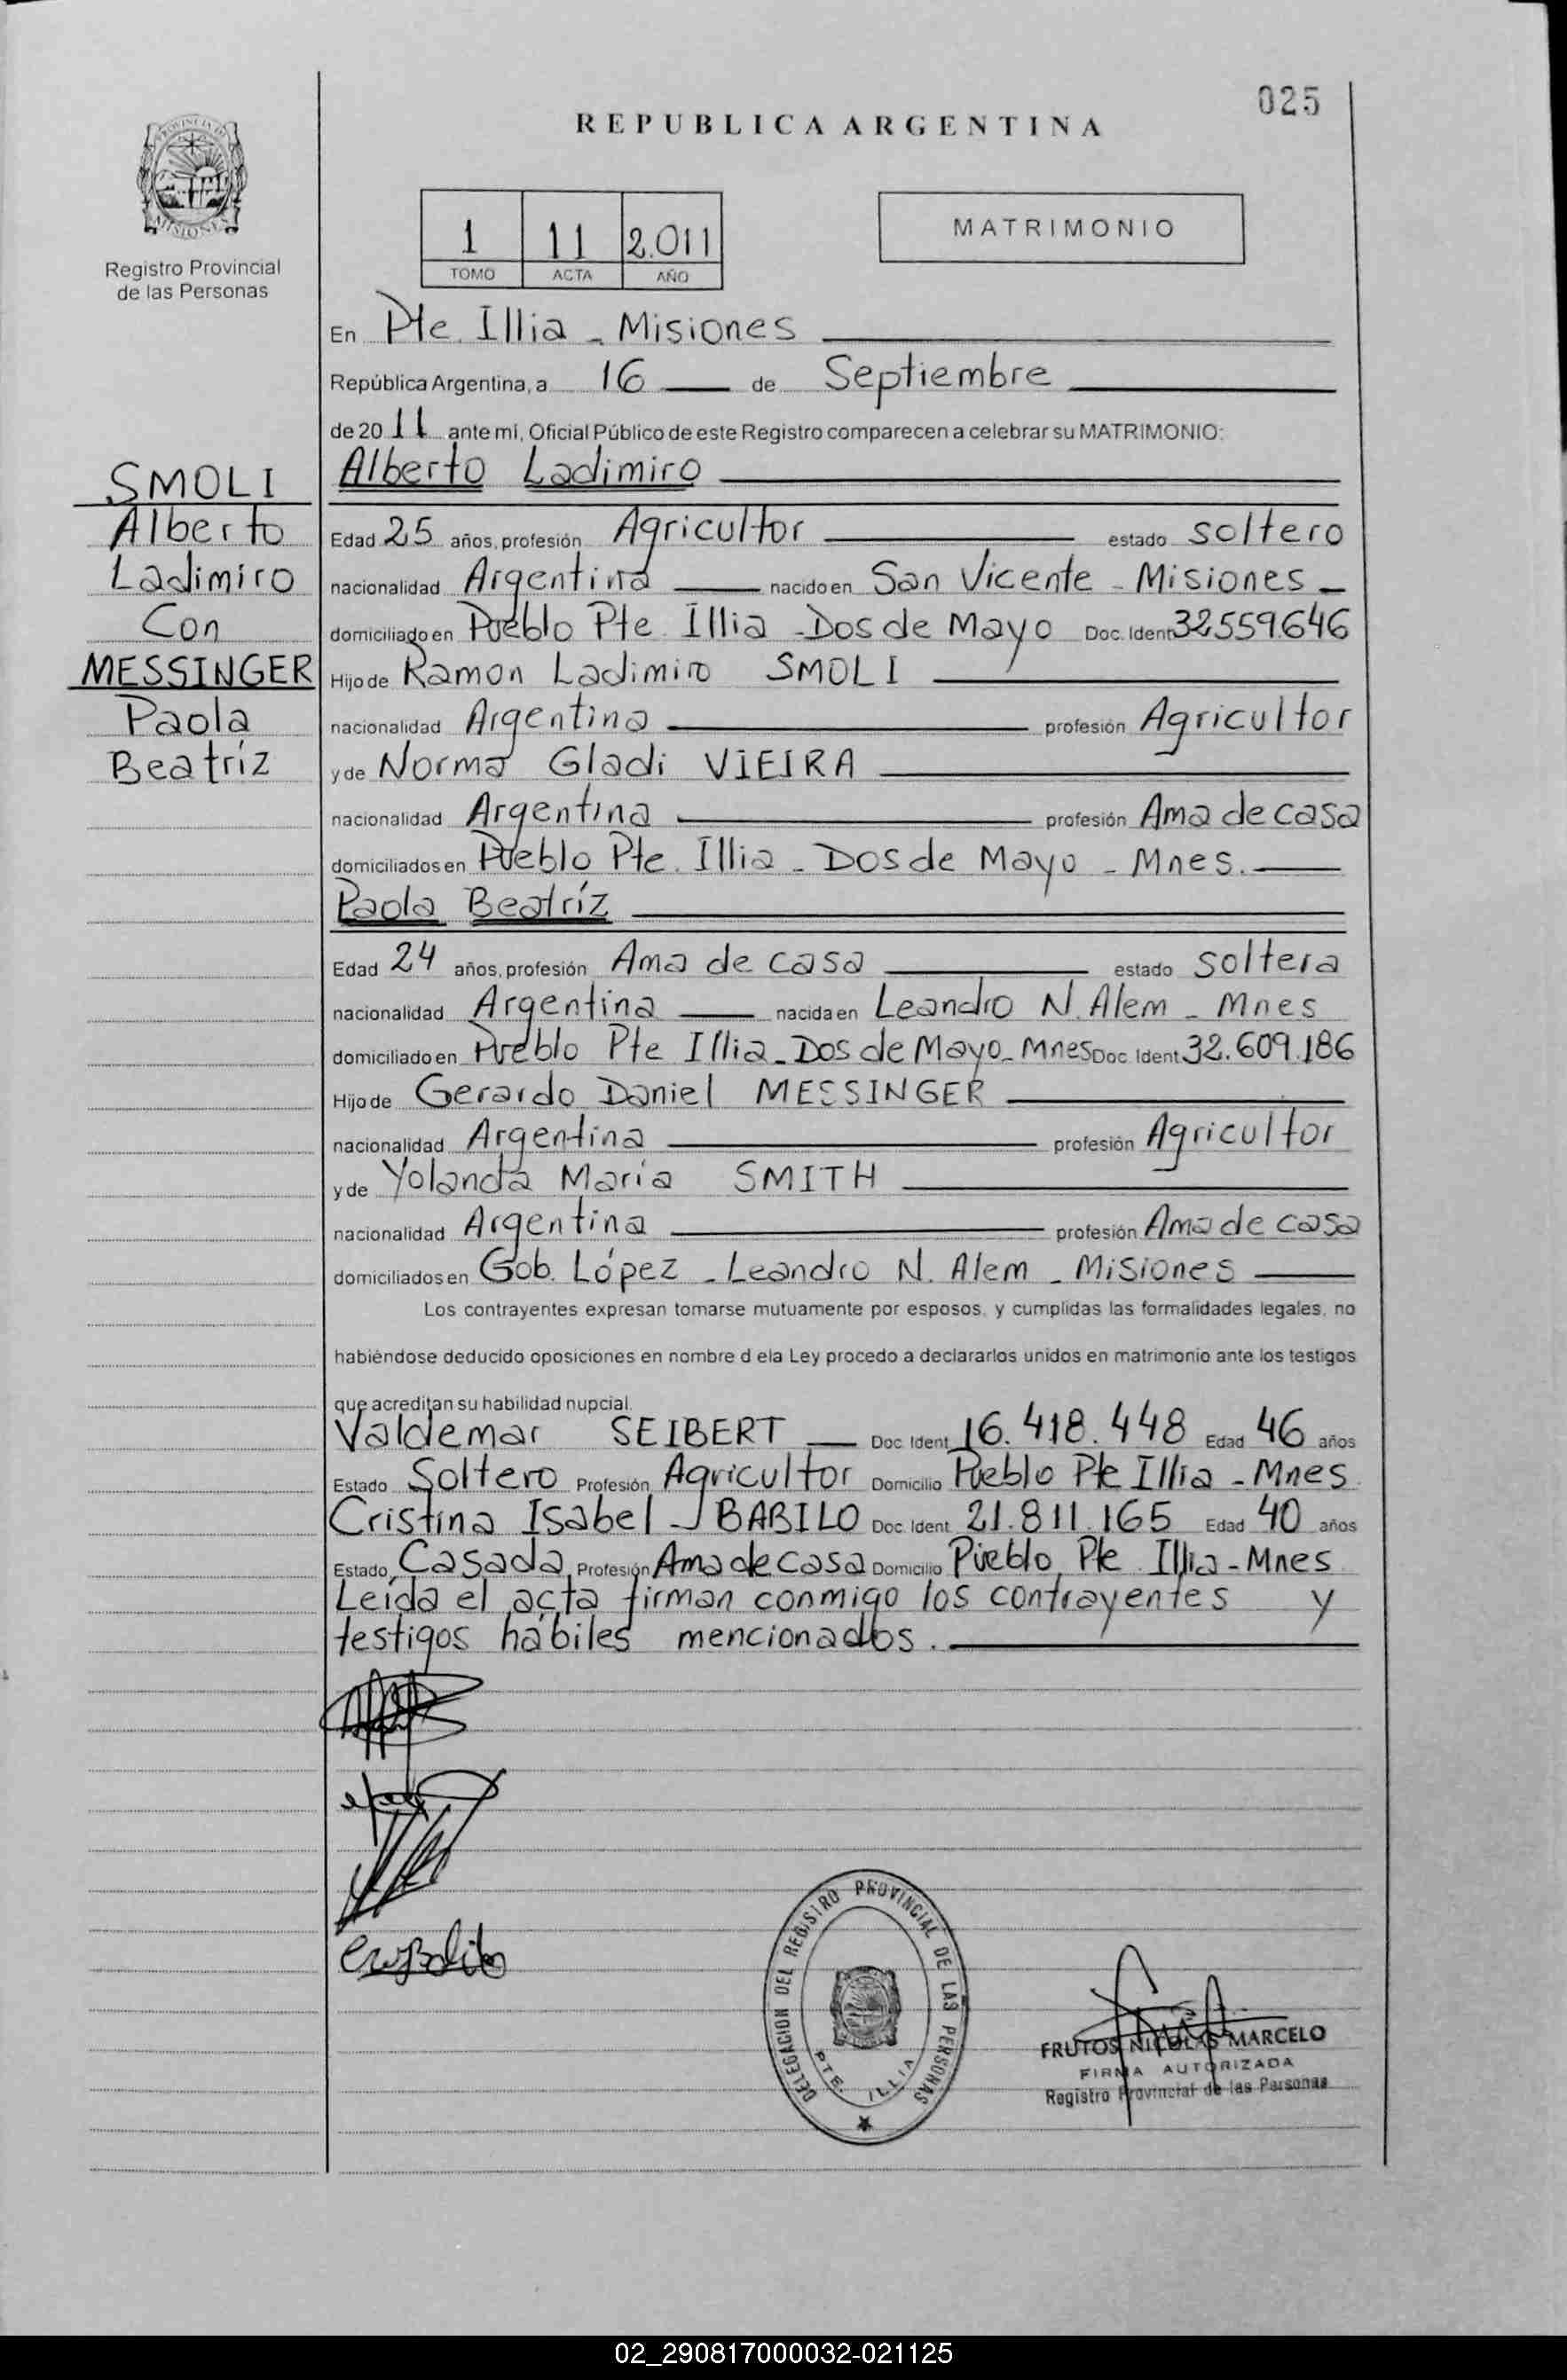 025
REPUBLICA ARGENTINA
PROVINCIA DE MISIONES
Registro Provincial
de las Personas
1 11 2.011
TOMO ACTA AÑO
MATRIMONIO
En Pte. Illia - Misiones
República Argentina, a 16 de Septiembre
de 20 11 ante mi, Oficial Público de este Registro comparecen a celebrar su MATRIMONIO:
SMOLI
Alberto
Ladimiro
Con
MESSINGER
Paola
Beatríz
Alberto Ladimiro
Edad 25 años, profesión Agricultor estado soltero
nacionalidad Argentina nacido en San Vicente - Misiones
domiciliado en Pueblo Pte. Illia - Dos de Mayo Doc. Ident 32559646
Hijo de Ramon Ladimiro SMOLI
nacionalidad Argentina profesión Agricultor
y de Norma Gladi VIEIRA
nacionalidad Argentina profesión Ama de casa
domiciliados en Pueblo Pte. Illia - Dos de Mayo - Mnes.
Paola Beatríz
Edad 24 años, profesión Ama de casa estado soltera
nacionalidad Argentina nacida en Leandro N. Alem - Mnes
domiciliado en Pueblo Pte Illia - Dos de Mayo - Mnes Doc. Ident 32.609.186
Hijo de Gerardo Daniel MESSINGER
nacionalidad Argentina profesión Agricultor
y de Yolanda María SMITH
nacionalidad Argentina profesión Ama de casa
domiciliados en Gob. López - Leandro N. Alem - Misiones
Los contrayentes expresan tomarse mutuamente por esposos, y cumplidas las formalidades legales, no
habiéndose deducido oposiciones en nombre d ela Ley procedo a declararlos unidos en matrimonio ante los testigos
que acreditan su habilidad nupcial.
Valdemar SEIBERT Doc. Ident 16.418.448 Edad 46 años
Estado Soltero Profesión Agricultor Domicilio Pueblo Pte Illia - Mnes
Cristina Isabel BABILO Doc. Ident. 21.811.165 Edad 40 años
Estado Casada Profesión Ama de casa Domicilio Pueblo Pte Illia - Mnes
Leída el acta firman conmigo los contrayentes y
testigos hábiles mencionados.
DELEGACION DEL REGISTRO PROVINCIAL DE LAS PERSONAS
PTE. ILLIA
FRUTOS NICOLAS MARCELO
FIRMA AUTORIZADA
Registro Provincial de las Personas
02_290817000032-021125